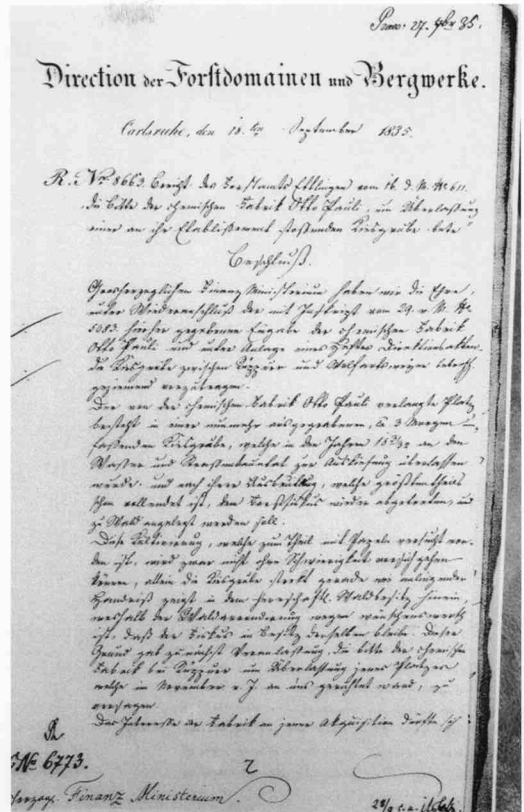 Praes. 27. 7br 35.
Direction der Forstdomainen und Bergwerke.
Carlsruhe, den 18.ten September 1835.
R. No. 8663. Bericht des Forstamts Ettlingen vom 16. d. M. No 611.
die Bitte der chemischen Fabrik Otto Pauli, um Überlassung
einer an ihr Etablissement stoßenden Kiesgrube betr.
Beschluß.
Großherzoglichem Finanz Ministerium haben wir die Ehre,
unter Wiederanschluß der mit vom 29. v. M. No
5083. hierher gegebenen Eingabe der chemischen Fabrik
Otto Pauli und unter Anlage eines Heftes Direktionsakten,
die Kiesgrube zwischen Rüppurr und Wolfartsweier betreff.
geziemend vorzutragen.
Der von der chemischen Fabrik Otto Pauli verlangte Platz
besteht in einer nunmehr ausgegrabenen, 3 Morgen
fassenden Kiesgrube, welche in den Jahren an den
Wasser und Straßenbau zur Ausbeutung überlassen
wurde und nach ihrer Ausbeutung, welche größtentheils
schon vollendet ist, dem Forstfiskus wieder abgetreten, und
zu Wald angelegt werden soll.
Diese Kultivierung, welche zum Theil mit Pappeln versucht wor-
den ist, wird zwar nicht ohne Schwierigkeit vor sich gehen
können, allein die Kiesgrube steckt gerade wie anliegender
Handriß zeigt in dem herrschaftl. Waldbesitz hinein,
weshalb der Waldarrondirung wegen wünschenswerth
ist, daß der Fiskus im Besitz derselben bleibe. Dieser
Grund gab zunächst Veranlassung, die Bitte der chemischen
Fabrik bei Rüppurr um Überlassung jenes Platzes
welche im November v. J. an uns gerichtet ward, zu
versagen.
Das Interesse der Fabrik an jener Akquisition dürfte sich
No 6773.
Finanz Ministerium.